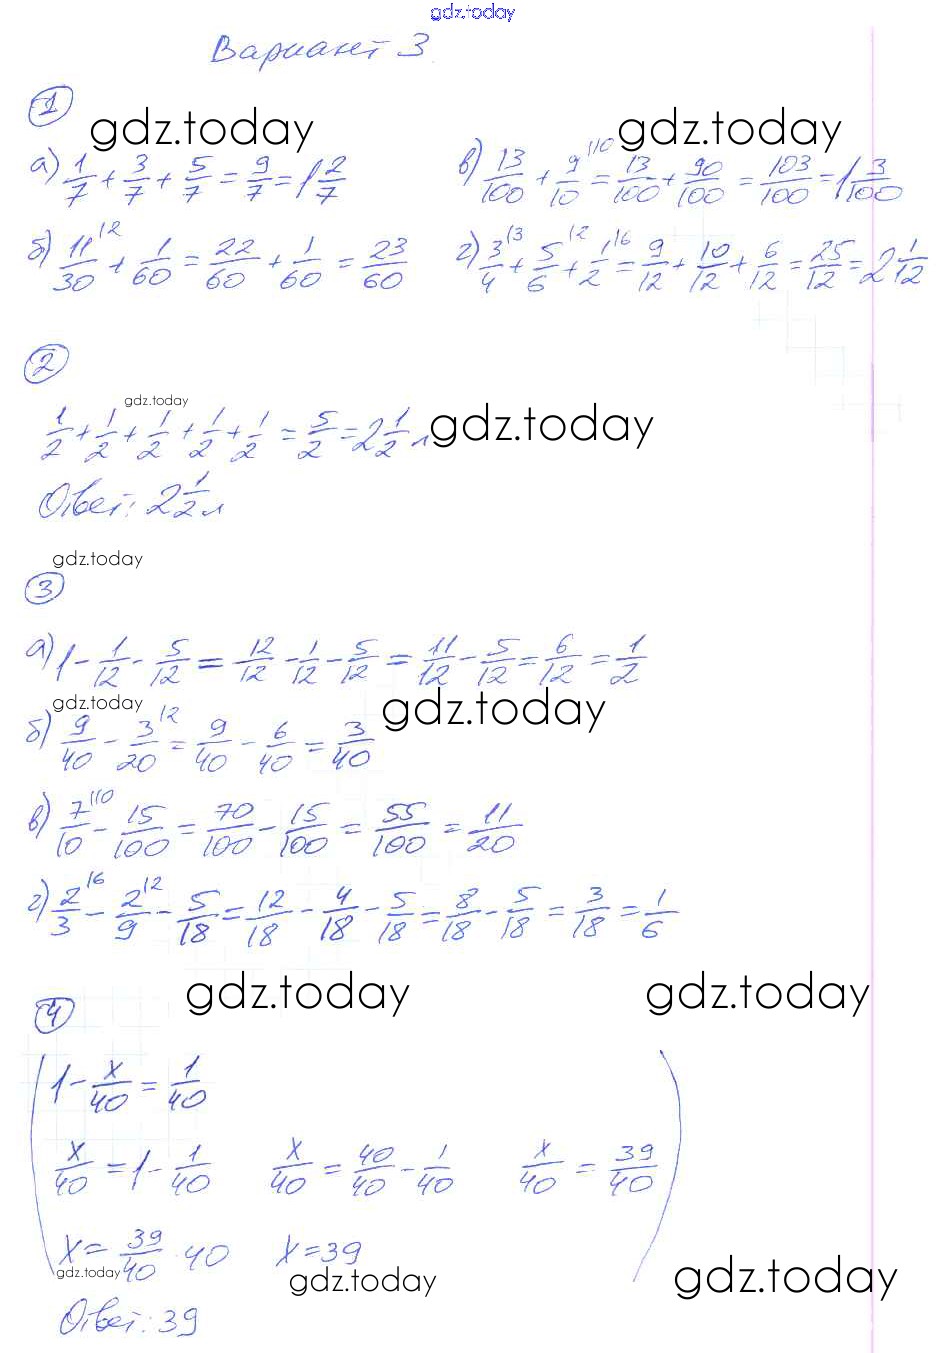 gdz.today
Вариант 3
1
gdz.today gdz.today
а) 1/7 + 3/7 + 5/7 = 9/7 = 1 2/7
в) 13/100 + 9/10 \10 = 13/100 + 90/100 = 103/100 = 1 3/100
б) 11/30 \2 + 1/60 = 22/60 + 1/60 = 23/60
г) 3/4 \3 + 5/6 \2 + 1/2 \6 = 9/12 + 10/12 + 6/12 = 25/12 = 2 1/12
2
gdz.today gdz.today
1/2 + 1/2 + 1/2 + 1/2 + 1/2 = 5/2 = 2 1/2 л
Ответ: 2 1/2 л
gdz.today
3
а) 1 - 1/12 - 5/12 = 12/12 - 1/12 - 5/12 = 11/12 - 5/12 = 6/12 = 1/2
gdz.today gdz.today
б) 9/40 - 3/20 \2 = 9/40 - 6/40 = 3/40
в) 7/10 \10 - 15/100 = 70/100 - 15/100 = 55/100 = 11/20
г) 2/3 \6 - 2/9 \2 - 5/18 = 12/18 - 4/18 - 5/18 = 8/18 - 5/18 = 3/18 = 1/6
gdz.today gdz.today
4
1 - x/40 = 1/40
x/40 = 1 - 1/40 x/40 = 40/40 - 1/40 x/40 = 39/40
x = 39/40 · 40 x = 39
gdz.today gdz.today gdz.today
Ответ: 39